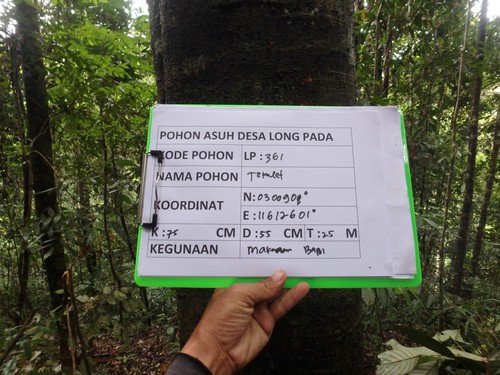 POHON ASUH DESA LONG PADA
KODE POHON LP : 361
NAMA POHON
KOORDINAT
N: 0300908°
E : 11612601°
K : 75 CM D : 55 CM T : 25 M
KEGUNAAN Makanan BABI